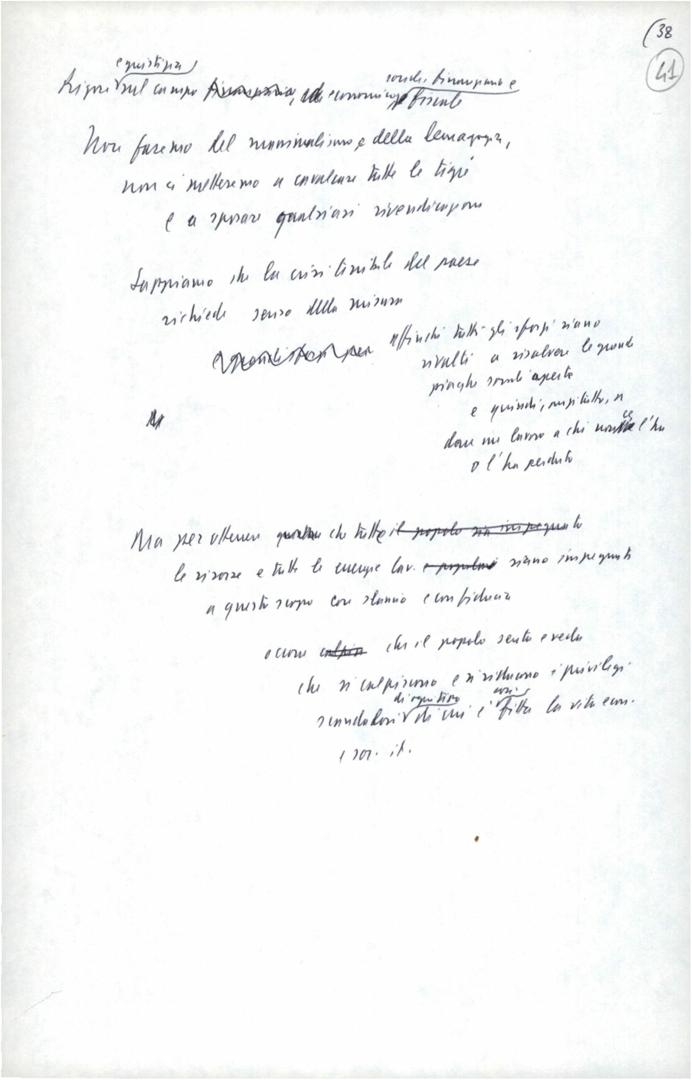 (38
41
e giustizia
sociale, finanziario e
Rigore sul campo finanziario, ed economico, e fiscale
Non faremo del massimalismo e della demagogia,
non ci metteremo a cavalcare tutte le tigri
e a sposare qualsiasi rivendicazione
Sappiamo che la crisi terribile del paese
richiede senso della misura
affinché tutti gli sforzi siano
rivolti a risolvere le grandi
piaghe sociali aperte
e quindi, anzitutto, a
dare un lavoro a chi non ce l'ha
o l'ha perduto
Ma per ottenere che tutte il popolo sia impegnato
le risorse e tutte le energie lav. e popolari siano impegnati
a questo scopo con slancio e confidenza
occorre colpire che il popolo senta e veda
che si colpiscono e si riducono i privilegi
di ogni tipo così
scandalosi di cui è fitta la vita econ.
e soc. it.